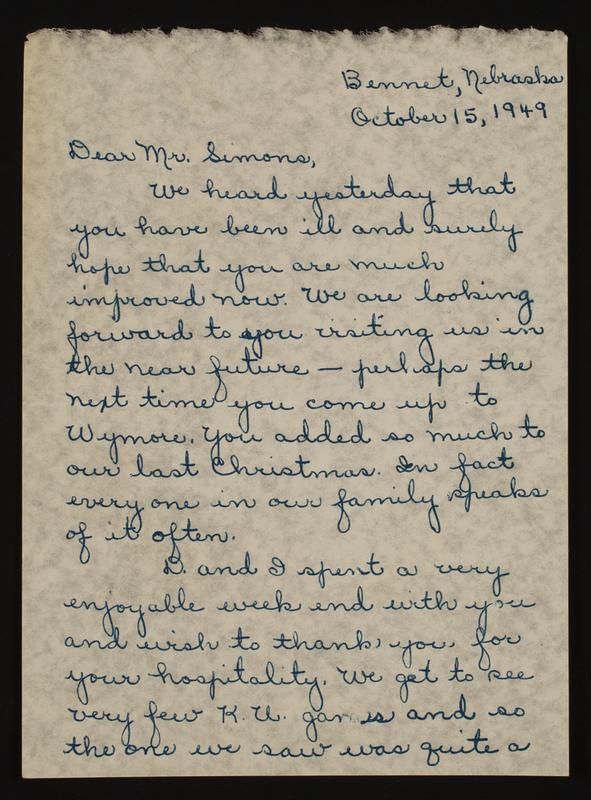 Bennet, Nebraska
October 15, 1949
Dear Mr. Simons,
We heard yesterday that
you have been ill and surely
hope that you are much
improved now. We are looking
forward to you visiting us in
the near future — perhaps the
next time you come up to
Wymore. You added so much to
our last Christmas. In fact
everyone in our family speaks
of it often.
D. and I spent a very
enjoyable week end with you
and wish to thank you for
your hospitality. We get to see
very few K.U. games and so
the one we saw was quite a